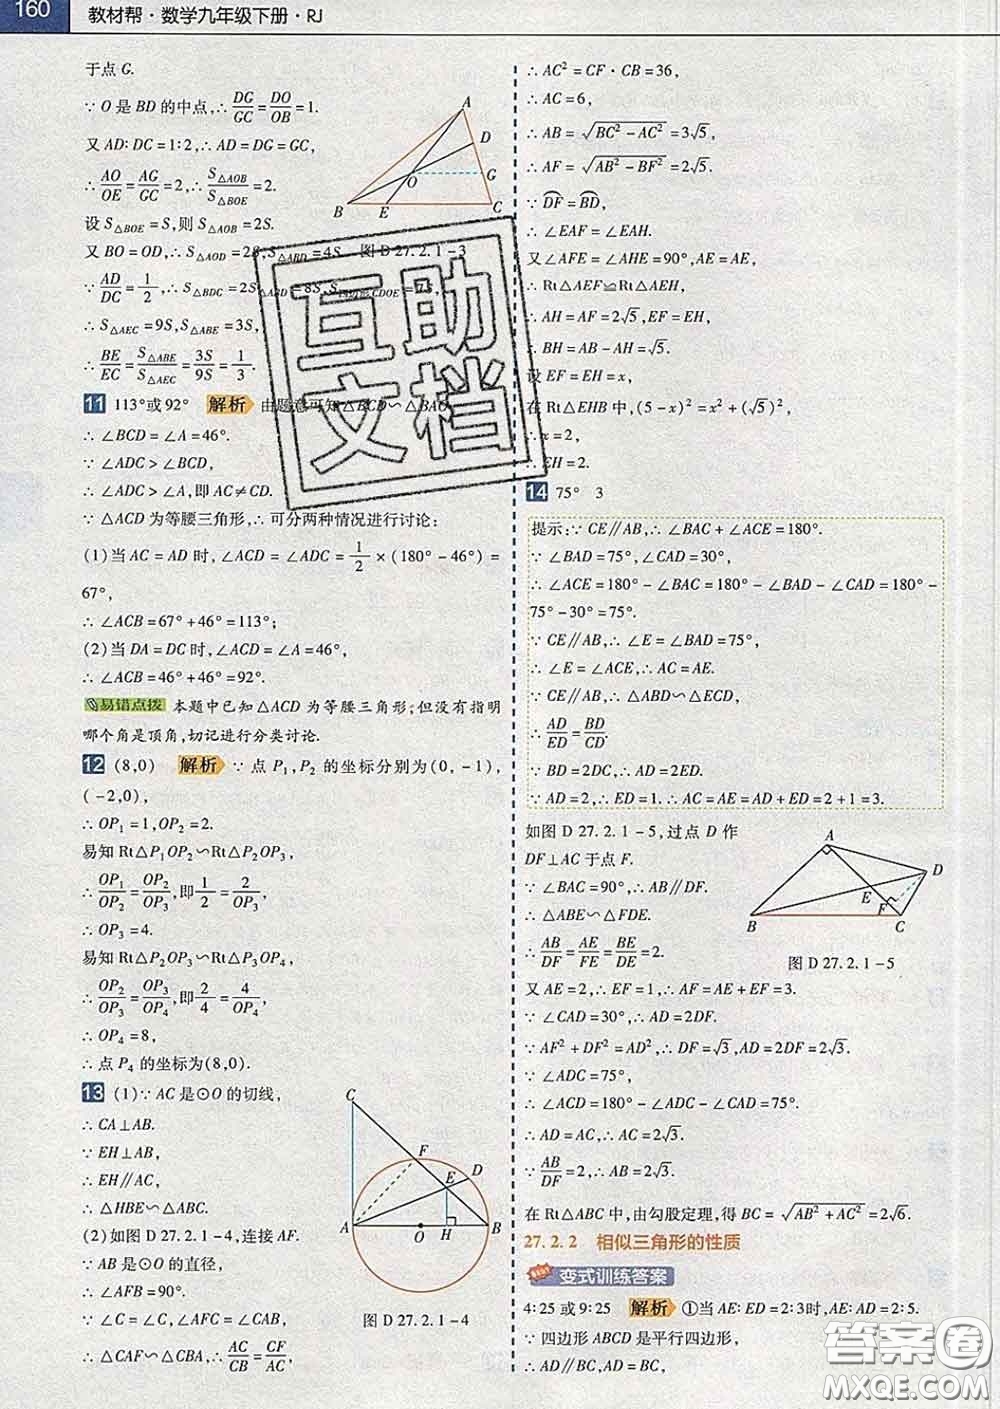 160 教材帮·数学九年级下册·RJ
于点 G.
∵ O 是 BD 的中点,∴ DG/GC = DO/OB = 1.
又 AD∶DC = 1∶2,∴ AD = DG = GC,
∴ AO/OE = AG/GC = 2,∴ S△AOB/S△BOE = 2.
设 S△BOE = S,则 S△AOB = 2S.
又 BO = OD,∴ S△AOD = 2S,S△ABD = 4S.
A
D
O
G
B E C
图 D 27.2.1-3
∵ AD/DC = 1/2,∴ S△BDC = 2S△ABD = 8S,
∴ S△AEC = 9S,S△ABE = 3S,
∴ BE/EC = S△ABE/S△AEC = 3S/9S = 1/3.
11 113°或 92° 解析 由题意可知△BCD∽△BAC,
∴ ∠BCD = ∠A = 46°.
∵ ∠ADC > ∠BCD,
∴ ∠ADC > ∠A,即 AC ≠ CD.
∵ △ACD 为等腰三角形,∴ 可分两种情况进行讨论:
(1)当 AC = AD 时,∠ACD = ∠ADC = 1/2 × (180° - 46°) =
67°,
∴ ∠ACB = 67° + 46° = 113°;
(2)当 DA = DC 时,∠ACD = ∠A = 46°,
∴ ∠ACB = 46° + 46° = 92°.
易错点拨 本题中已知△ACD 为等腰三角形;但没有指明
哪个角是顶角,切记进行分类讨论.
12 (8,0) 解析 ∵ 点 P1,P2 的坐标分别为(0,-1),
(-2,0),
∴ OP1 = 1,OP2 = 2.
易知 Rt△P1OP2∽Rt△P2OP3,
∴ OP1/OP2 = OP2/OP3,即 1/2 = 2/OP3,
∴ OP3 = 4.
易知 Rt△P2OP3∽Rt△P3OP4,
∴ OP2/OP3 = OP3/OP4,即 2/4 = 4/OP4,
∴ OP4 = 8,
∴ 点 P4 的坐标为(8,0).
13 (1)∵ AC 是⊙O 的切线,
∴ CA⊥AB.
∵ EH⊥AB,
∴ EH∥AC,
∴ △HBE∽△ABC.
(2)如图 D 27.2.1-4,连接 AF.
∵ AB 是⊙O 的直径,
∴ ∠AFB = 90°.
∵ ∠C = ∠C,∠AFC = ∠CAB,
∴ △CAF∽△CBA,∴ AC/CB = CF/AC,
C
F
D
E
A O H B
图 D 27.2.1-4
∴ AC² = CF·CB = 36,
∴ AC = 6,
∴ AB = √(BC² - AC²) = 3√5,
∴ AF = √(AB² - BF²) = 2√5.
∵ DF = BD,
∴ ∠EAF = ∠EAH.
又∠AFE = ∠AHE = 90°,AE = AE,
∴ Rt△AEF≌Rt△AEH,
∴ AH = AF = 2√5,EF = EH,
∴ BH = AB - AH = √5.
设 EF = EH = x,
在 Rt△EHB 中,(5 - x)² = x² + (√5)²,
∴ x = 2,
∴ EH = 2.
14 75° 3
提示:∵ CE∥AB,∴ ∠BAC + ∠ACE = 180°.
∵ ∠BAD = 75°,∠CAD = 30°,
∴ ∠ACE = 180° - ∠BAC = 180° - ∠BAD - ∠CAD = 180° -
75° - 30° = 75°.
∵ CE∥AB,∴ ∠E = ∠BAD = 75°,
∴ ∠E = ∠ACE,∴ AC = AE.
∵ CE∥AB,∴ △ABD∽△ECD,
∴ AD/ED = BD/CD.
∵ BD = 2DC,∴ AD = 2ED.
∵ AD = 2,∴ ED = 1.∴ AC = AE = AD + ED = 2 + 1 = 3.
如图 D 27.2.1-5,过点 D 作
DF⊥AC 于点 F.
∵ ∠BAC = 90°,∴ AB∥DF.
∴ △ABE∽△FDE.
∴ AB/DF = AE/FE = BE/DE = 2.
A
D
E
F
B C
图 D 27.2.1-5
又 AE = 2,∴ EF = 1,∴ AF = AE + EF = 3.
∵ ∠CAD = 30°,∴ AD = 2DF.
∵ AF² + DF² = AD²,∴ DF = √3,AD = 2DF = 2√3.
∵ ∠ADC = 75°,
∴ ∠ACD = 180° - ∠ADC - ∠CAD = 75°.
∴ AD = AC,∴ AC = 2√3.
∵ AB/DF = 2,∴ AB = 2√3.
在 Rt△ABC 中,由勾股定理,得 BC = √(AB² + AC²) = 2√6.
27.2.2 相似三角形的性质
变式训练答案
4∶25 或 9∶25 解析 ①当 AE∶ED = 2∶3时,AE∶AD = 2∶5.
∵ 四边形 ABCD 是平行四边形,
∴ AD∥BC,AD = BC,
互助
文档
答案圈
MXQE.COM